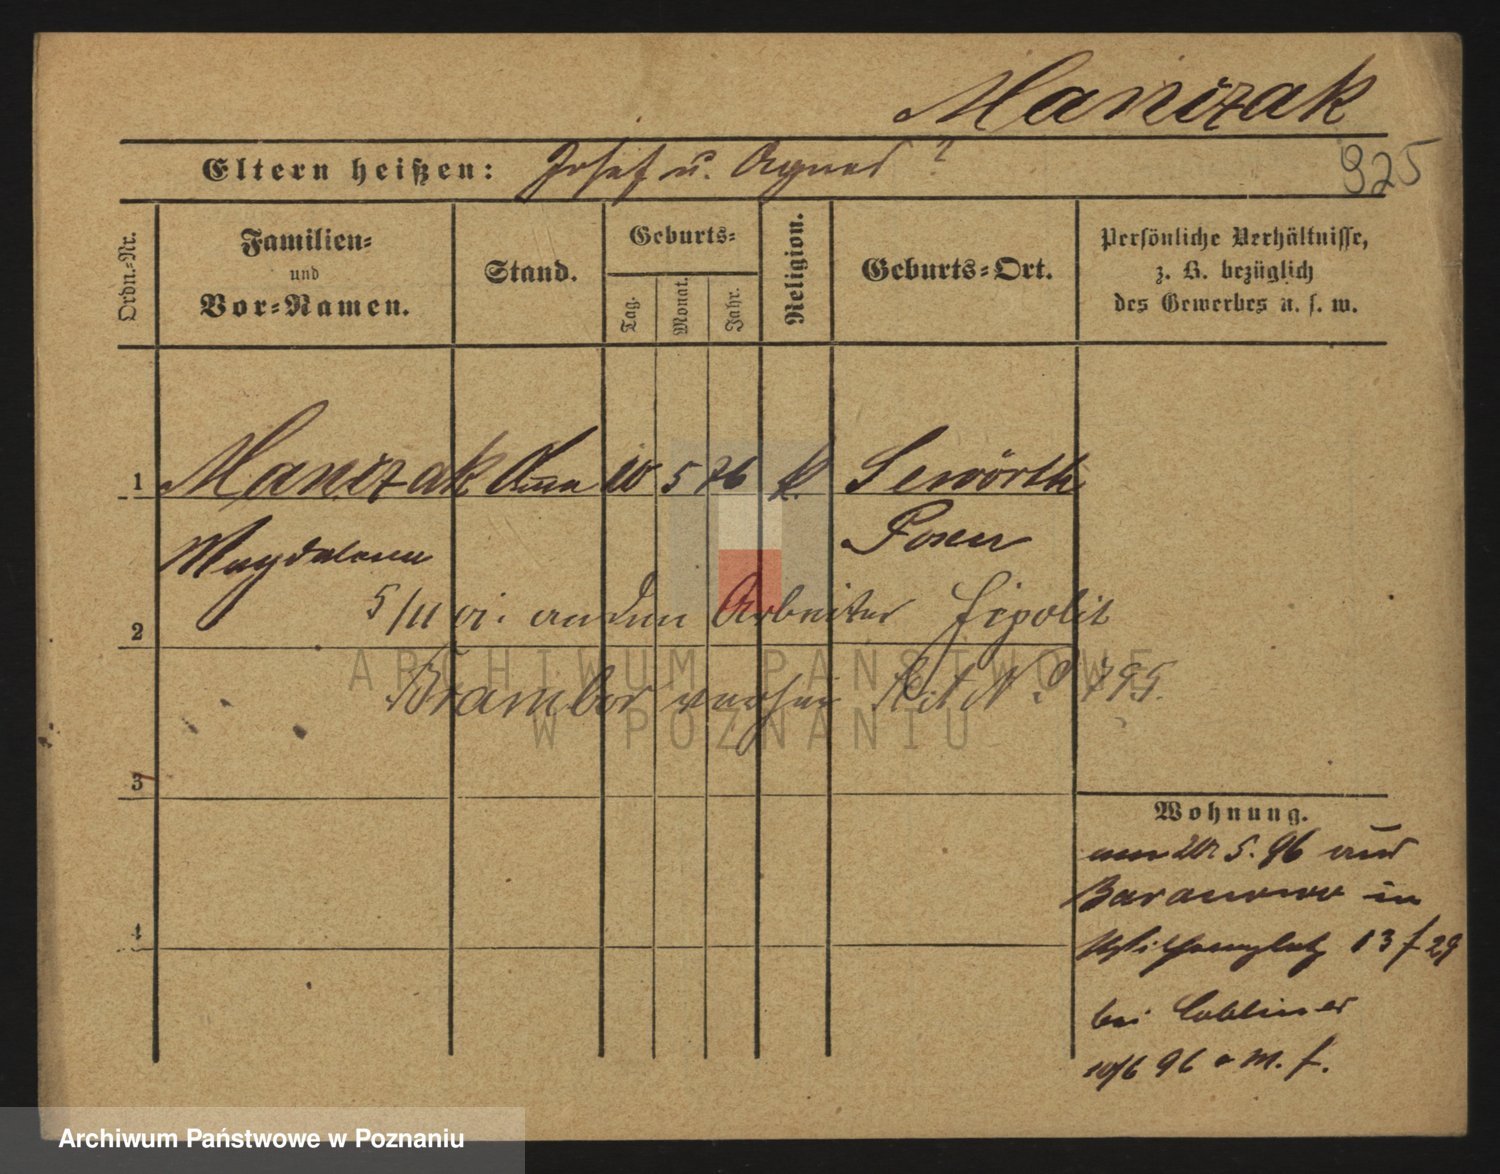 Manizak
Eltern heißen: Josef u. Agnes ?
925
Ordn.-Nr.
Familien-
und
Vor-Namen.
Stand.
Geburts-
Tag.
Monat.
Jahr.
Religion.
Geburts-Ort.
Persönliche Verhältnisse,
z. B. bezüglich
des Gewerbes u. s. w.
1 Manizak Amme 10 5 76 k. Sewörth
Magdalena Posen
5/11 01. an den Arbeiter Hipolit
2
Brambor verh. No 795.
ARCHIWUM PAŃSTWOWE
W POZNANIU
3
4
Wohnung.
am 20 5. 96 aus
Baranowo in
Wilhemplatz 13 f 29
bei Cobliner
10/6 96 a M. f.
Archiwum Państwowe w Poznaniu